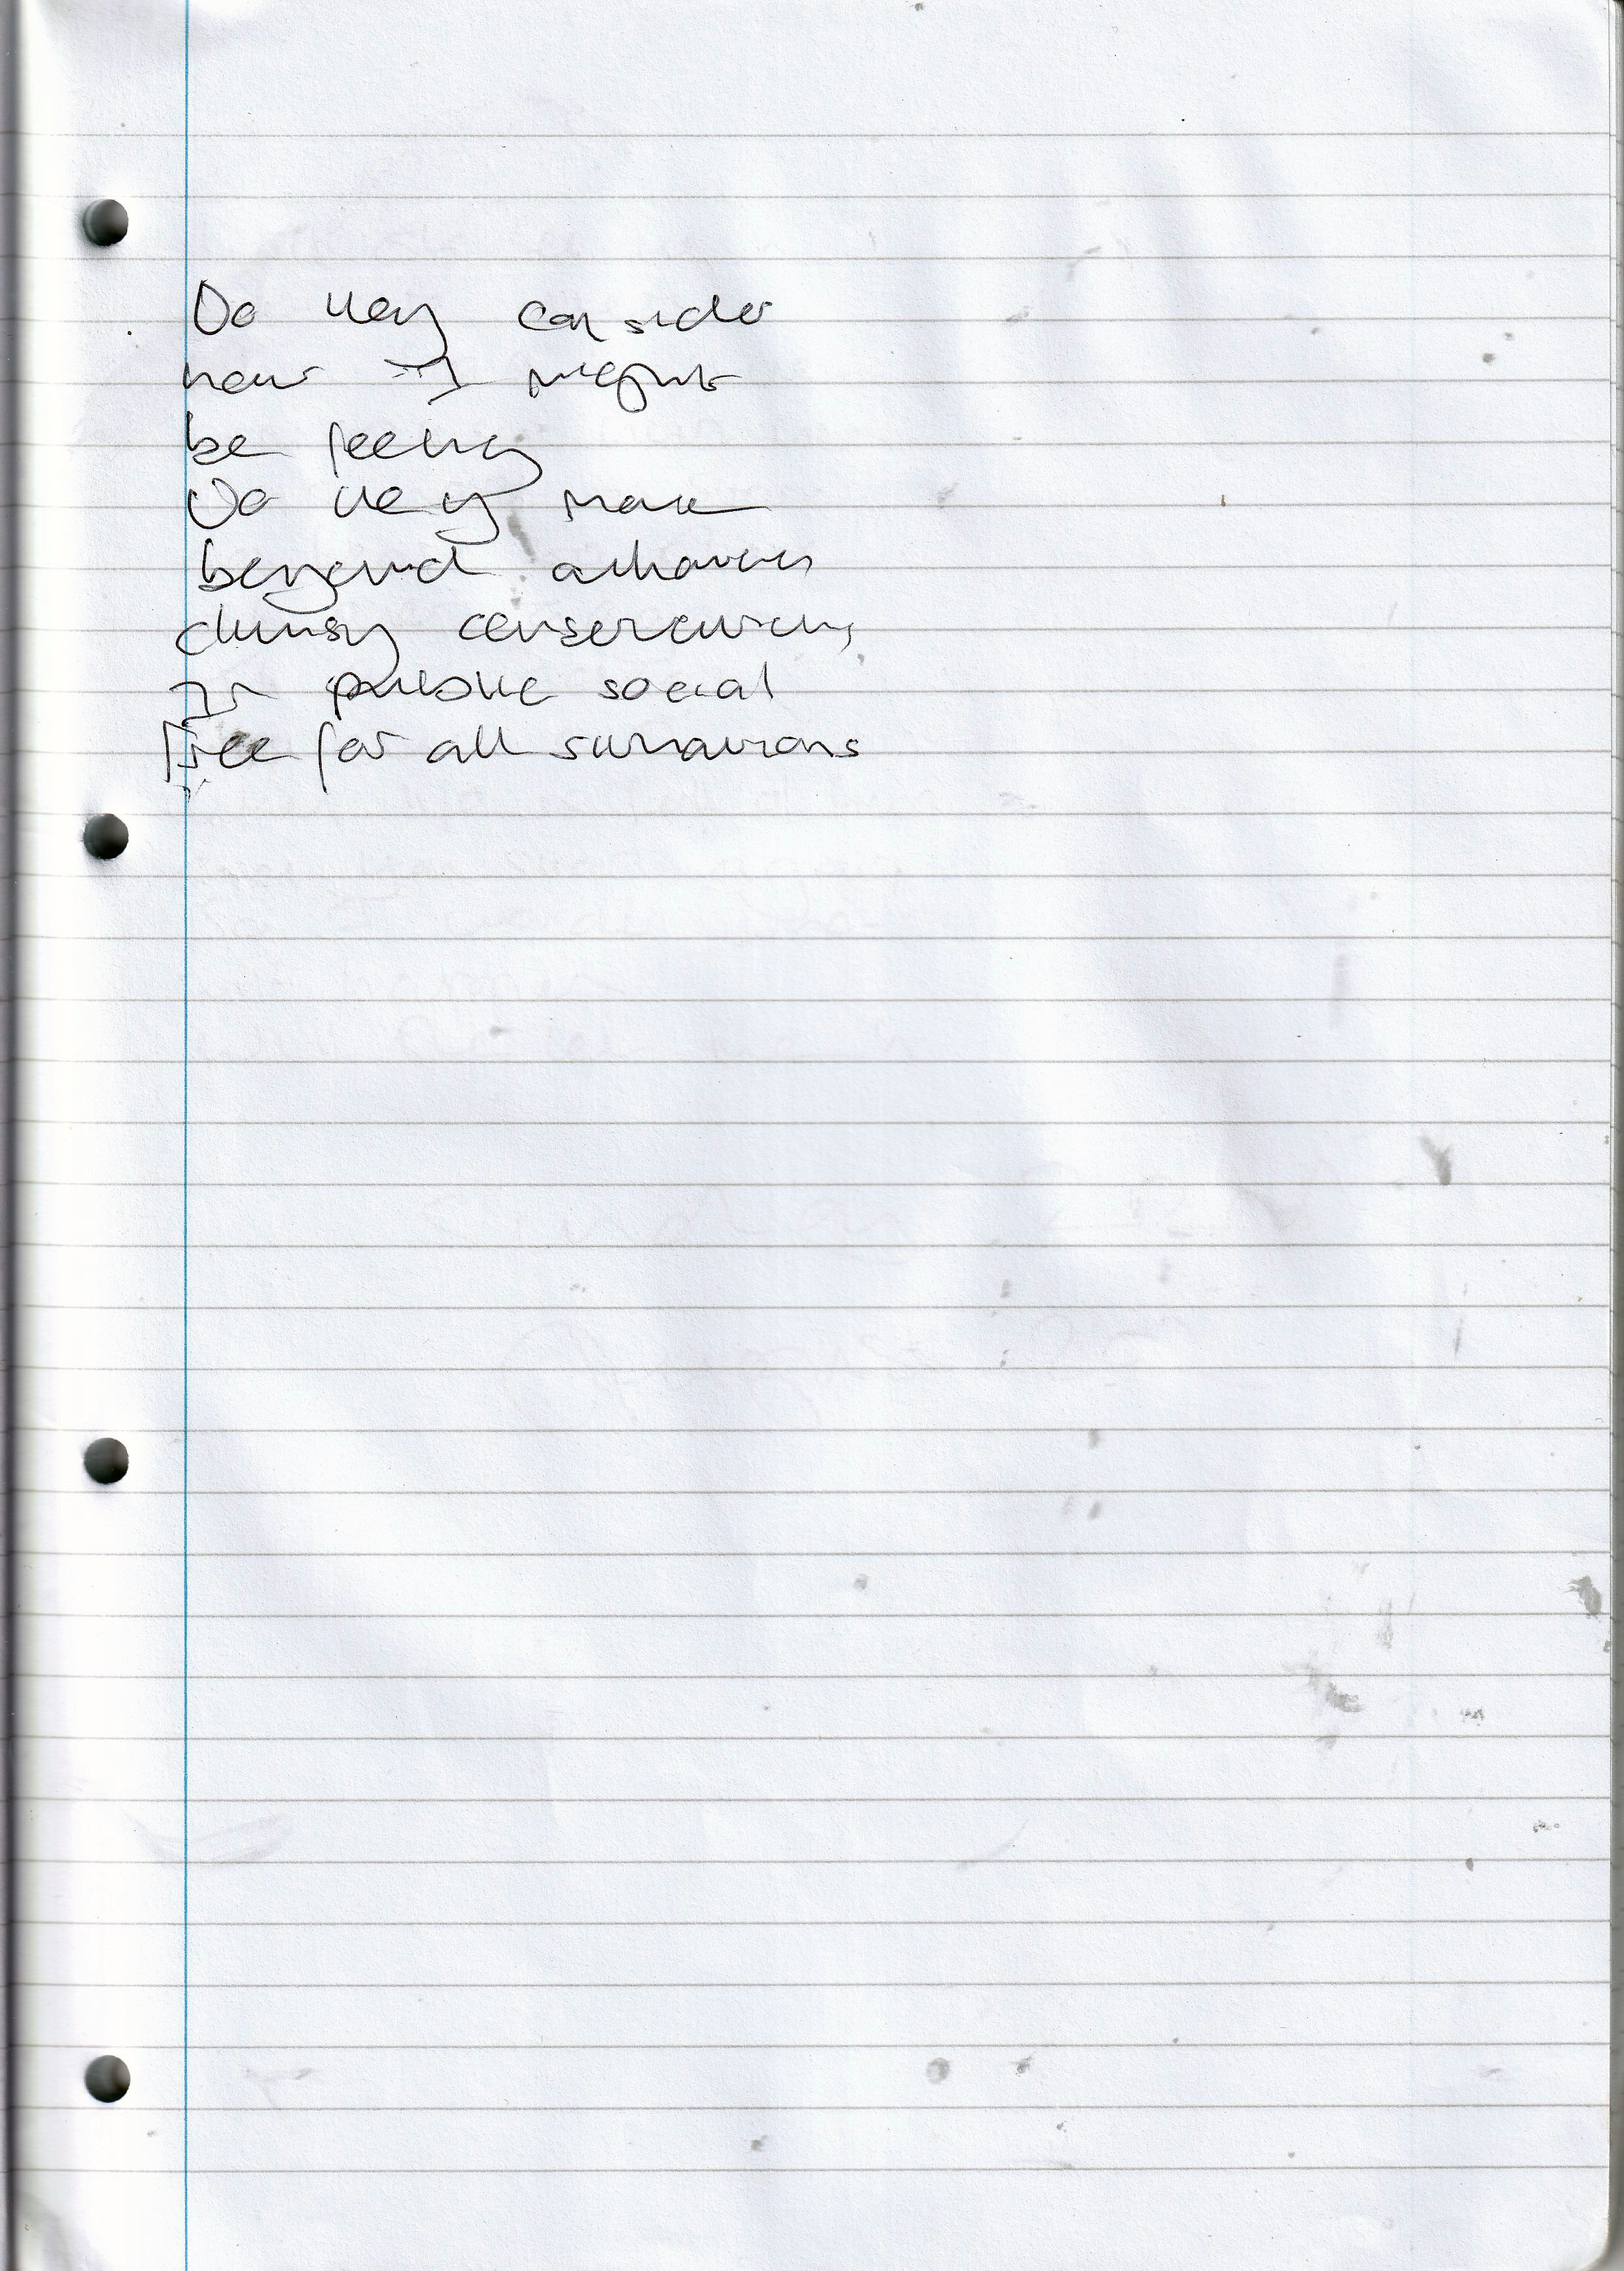 Do they consider
how I might
be feeling
Do they
beyond
clumsy conservation,
In public social
free for all situations